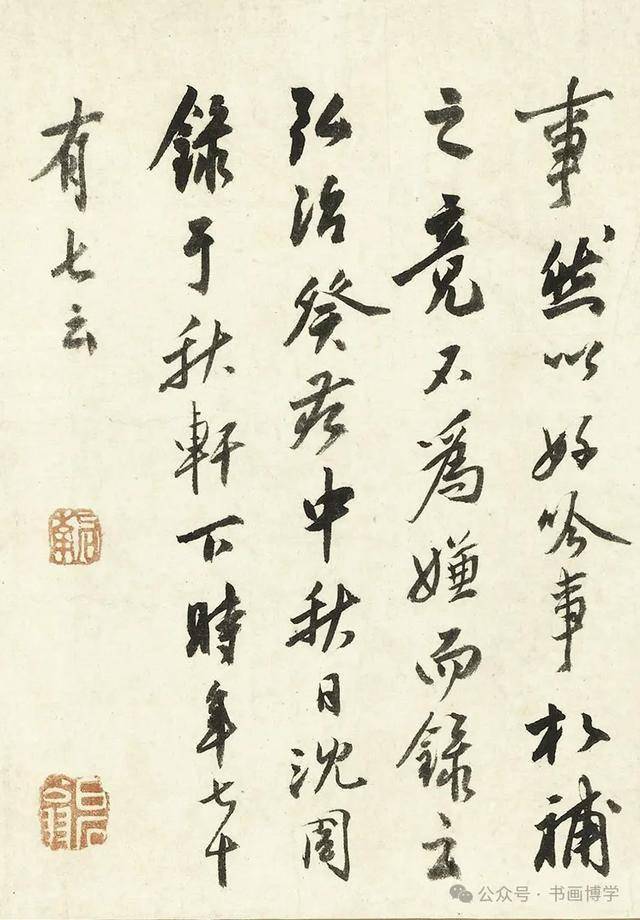 事然以好吟事補
之竟不爲嫌而錄云
弘治癸亥中秋日沈周
錄于秋軒下時年七十
有七云
啓南
公众号·书画博学